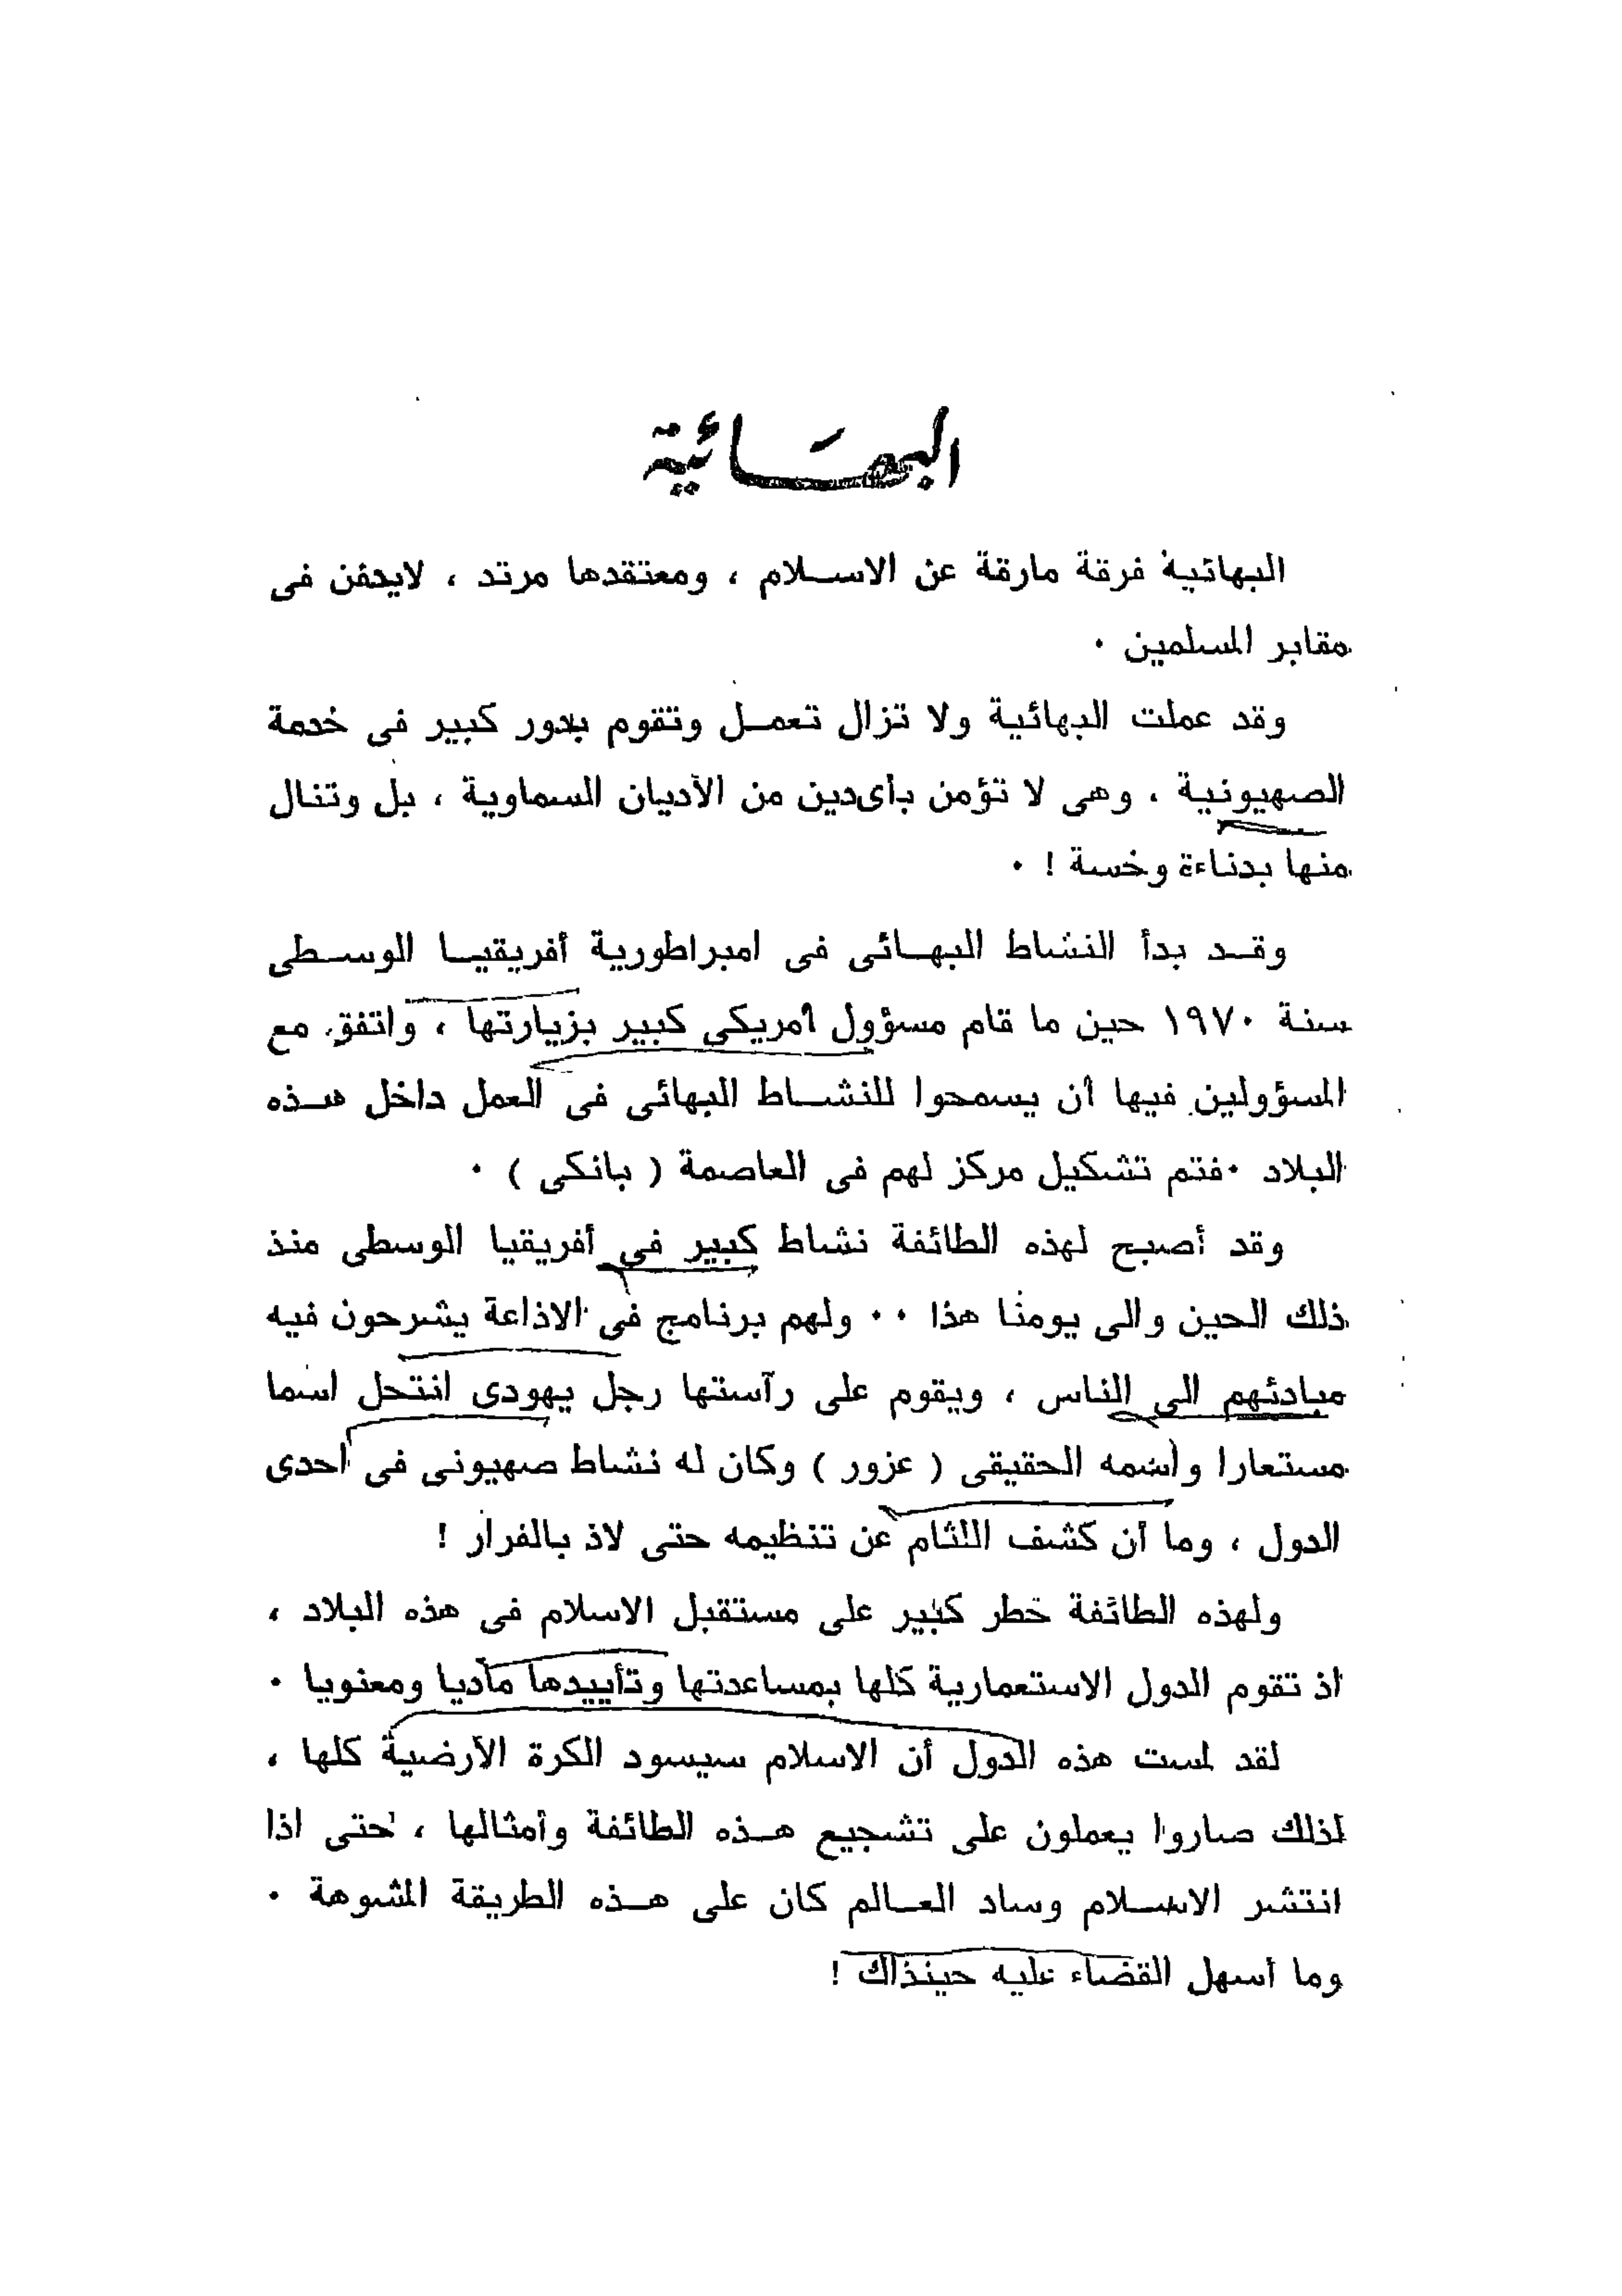 البهَائية
البهائية فرقة مارقة عن الاسـلام ، ومعتقدها مرتد ، لايدفن فى
مقابر المسلمين ٠
وقد عملت البهائية ولا تزال تعمـل وتقوم بدور كبير فى خدمة
الصهيونية ، وهى لا تؤمن بأىدين من الأديان السماوية ، بل وتنال
منها بدناءة وخسة ! ٠
وقـد بدأ النشاط البهـائى فى امبراطورية أفريقيـا الوسـطى
سنة ١٩٧٠ حين ما قام مسؤول أمريكى كبير بزيارتها ، واتفق مع
المسؤولين فيها أن يسمحوا للنشـاط البهائى فى العمل داخل هـذه
البلاد ٠فتم تشكيل مركز لهم فى العاصمة ( بانكى ) ٠
وقد أصبح لهذه الطائفة نشاط كبير فى أفريقيا الوسطى منذ
ذلك الحين والى يومنا هذا ٠٠ ولهم برنامج فى الاذاعة يشرحون فيه
مبادئهم الى الناس ، ويقوم على رآستها رجل يهودى انتحل اسما
مستعارا وأسمه الحقيقى ( عزور ) وكان له نشاط صهيونى فى احدى
الدول ، وما أن كشف اللثام عن تنظيمه حتى لاذ بالفرار !
ولهذه الطائفة خطر كبير على مستقبل الاسلام فى هذه البلاد ،
اذ تقوم الدول الاستعمارية كلها بمساعدتها وتأييدها ماديا ومعنويا ٠
لقد لمست هذه الدول أن الاسلام سيسود الكرة الأرضية كلها ،
لذلك صاروا يعملون على تشجيع هـذه الطائفة وأمثالها ، حتى اذا
انتشر الاسـلام وساد العـالم كان على هـذه الطريقة المشوهة ٠
وما أسهل القضاء عليه حينذاك !